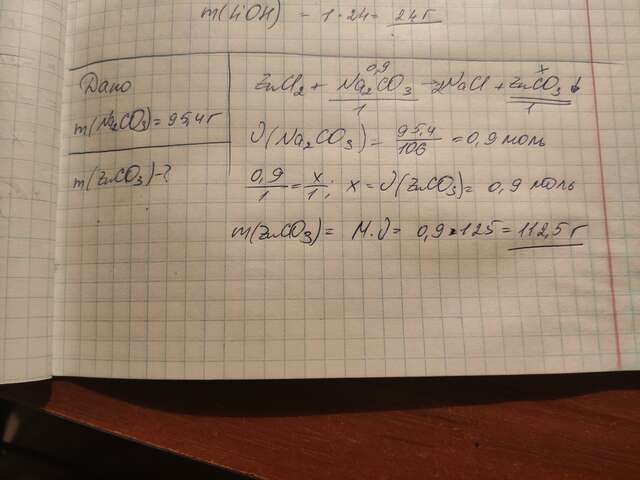 m(LiOH) = 1·24 = 24 г
Дано
m(Na₂CO₃) = 95,4 г
m(ZnCO₃) - ?
0,9 x
ZnCl₂ + Na₂CO₃ → 2NaCl + ZnCO₃ ↓
1 1
ν(Na₂CO₃) = 95,4/106 = 0,9 моль
0,9/1 = x/1; x = ν(ZnCO₃) = 0,9 моль
m(ZnCO₃) = M·ν = 0,9·125 = 112,5 г